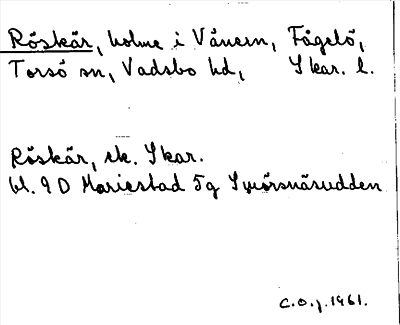 Röskär, holme i Vänern, Fågelö,
Torsö sn, Vadsbo hd, Skar. l.
Röskär, ek. Skar.
bl. 9 D Mariestad 5g Smörsnäsudden
C.O.J. 1961.